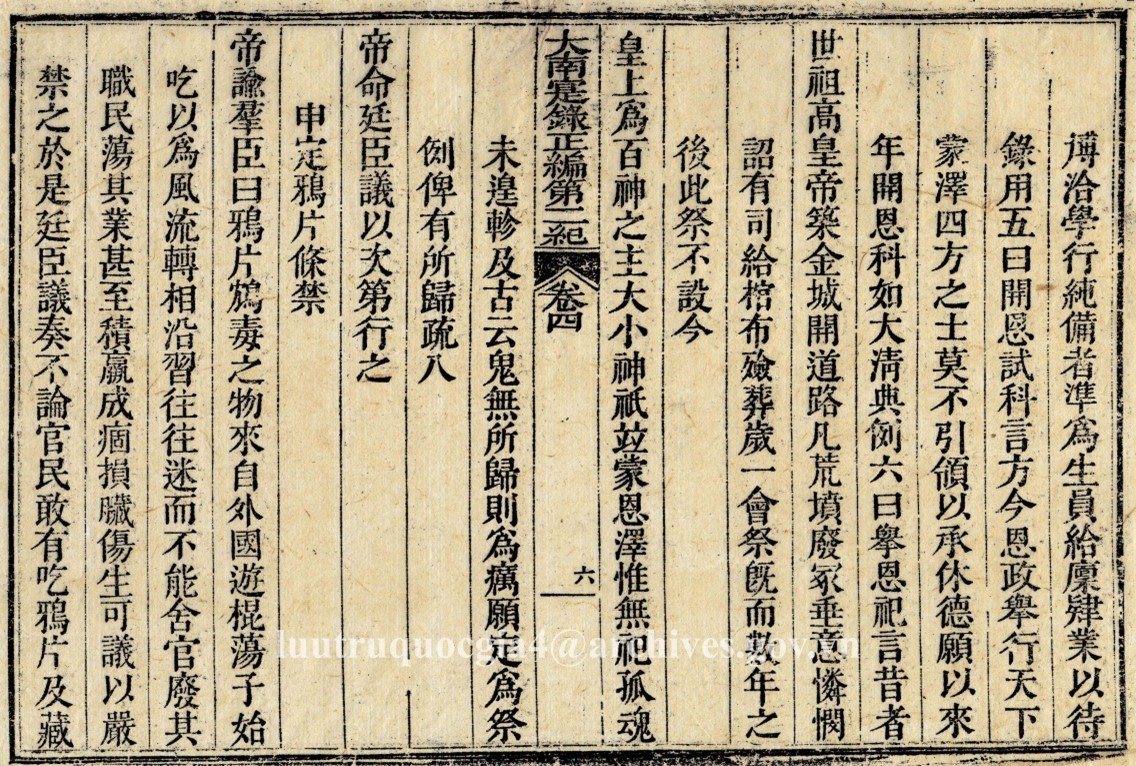 博洽學行純備者準爲生員給廩肄業以待
錄用五曰開恩試科言方今恩政舉行天下
蒙澤四方之士莫不引領以承休德願以來
年開恩科如大清典例六曰舉恩祀言昔者
世祖高皇帝築金城開道路凡荒墳廢冢垂意憐憫
詔有司給棺布殮葬歲一會祭旣而數年之
後此祭不設今
皇上爲百神之主大小神祇竝蒙恩澤惟無祀孤魂
大南寔錄正編第二紀 卷四 六
未遑軫及古云鬼無所歸則爲癘願定爲祭
例俾有所歸疏入
帝命廷臣議以次第行之
申定鴉片條禁
帝諭羣臣曰鴉片鴆毒之物來自外國遊棍蕩子始
吃以爲風流轉相沿習往往迷而不能舍官廢其
職民蕩其業甚至積羸成痼損臟傷生可議以嚴
禁之於是廷臣議奏不論官民敢有吃鴉片及藏
luutruquocgia4@archives.gov.vn